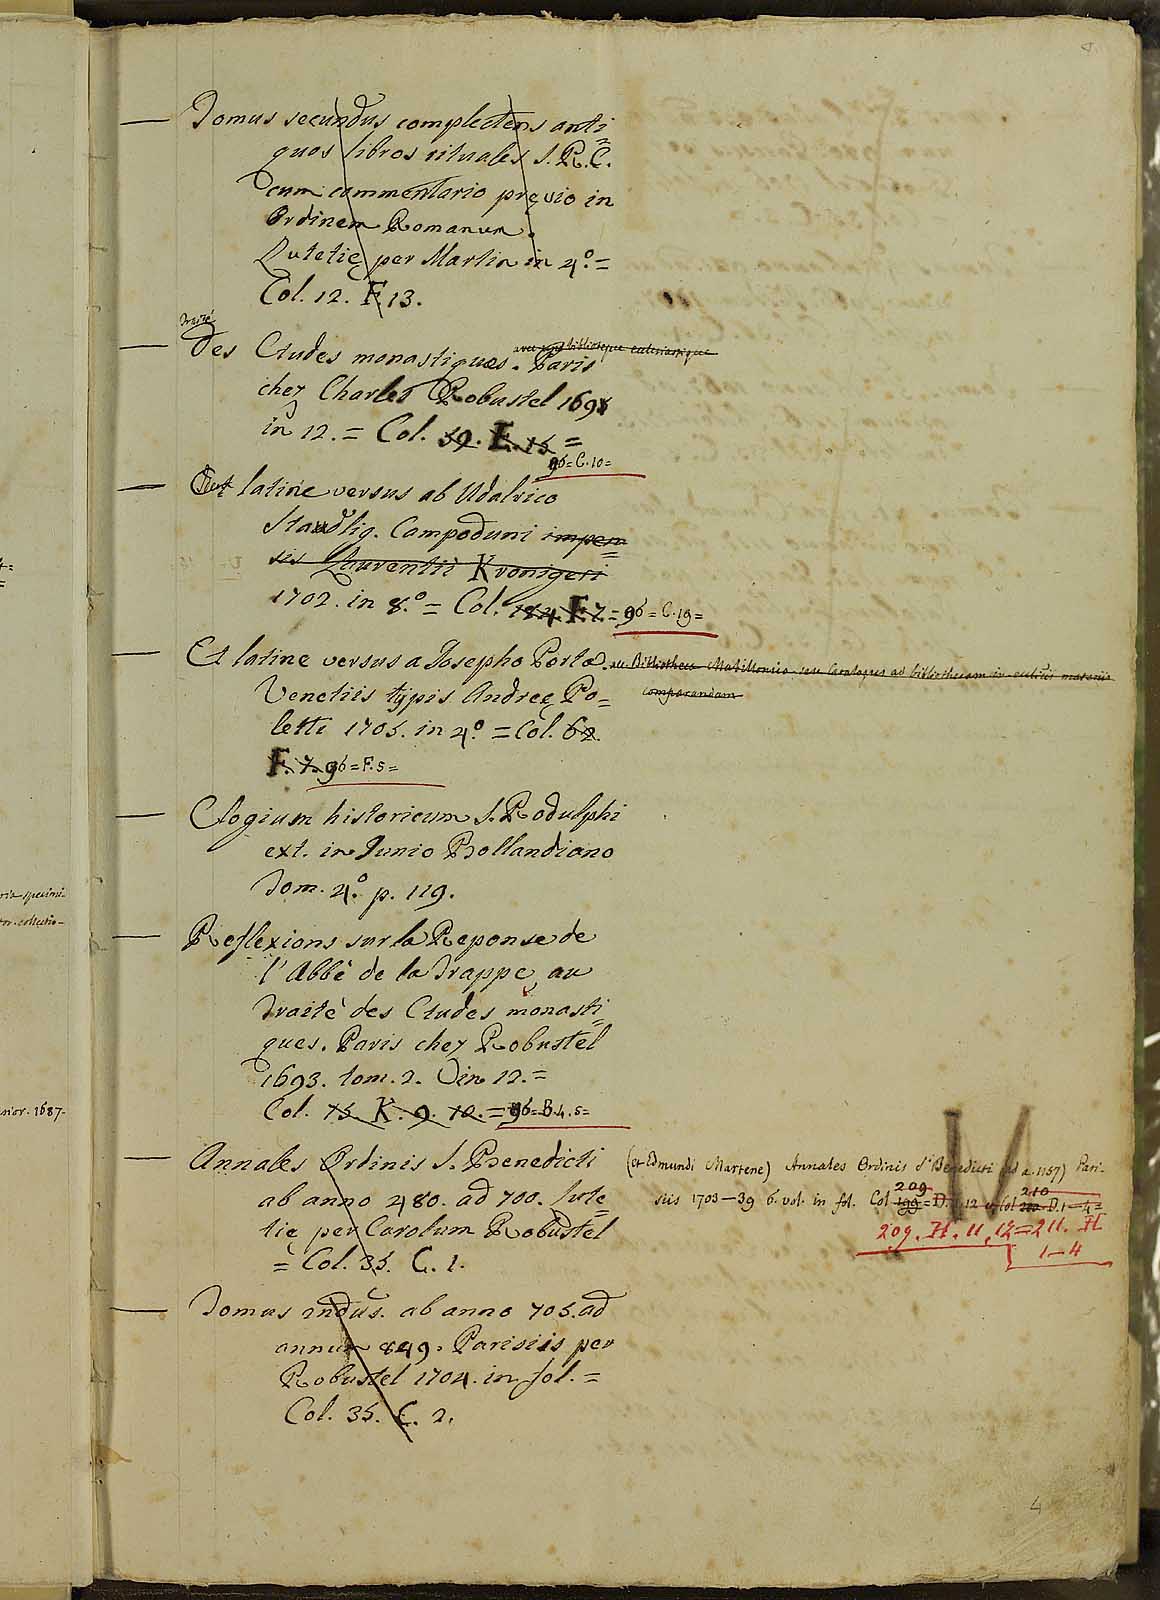 4
Tomus secundus complectens anti=
quos libros rituales S. R. E.
cum commentario pręvio in
Ordinem Romanum.
Lutetię per Martin in 4.º =
Col. 12. F. 13.
Traité
Des Etudes monastiques. Paris
avec une bibliotheque ecclesiastique
chez Charles Robustel 1691
in 12. = Col. 59. E. 15 =
96 = C. 10 =
Et latine versus ab Udalrico
Staudlig. Campoduni impen=
sis Laurentii Kronigeri
1702. in 8.º = Col. 184. F. 7. = 96 = C. 19 =
Et latine versus a Josepho Porta. Bibliotheca Mabilloniis seu Catalogus ad bibliothecam in
comparandam
Venetiis typis Andreę Po=
letti 1705. in 4.º = Col. 62.
F. 7. 96 = F. 5 =
Elogium historicum S. Rodulphi
ext. in Junio Bollandiano
Tom. 4.º p. 119.
Reflexions sur la Reponse de
l'Abbé de la Trappe, au
Traité des Etudes monasti=
ques. Paris chez Robustel
1693. tom. 2. in 12. =
Col. 15. K. 9. 10. = 96 = B. 4. 5 =
Annales Ordinis S. Benedicti
ab anno 480. ad 700. Lute=
tię per Carolum Robustel
= Col. 35. C. 1.
(et Edmundi Martene) Annales Ordinis S. Benedicti (ad a. 1157) Pari-
209 210
siis 1703—39 6. vol. in fol. Col 199 = D. 12 Col D. 1—4 =
209. H. 11, 12 = 211. H
1—4
Tomus 2ndus. ab anno 705. ad
annum 849. Parisiis per
Robustel 1704. in fol. =
Col. 35. C. 2.
4
nor. 1687.